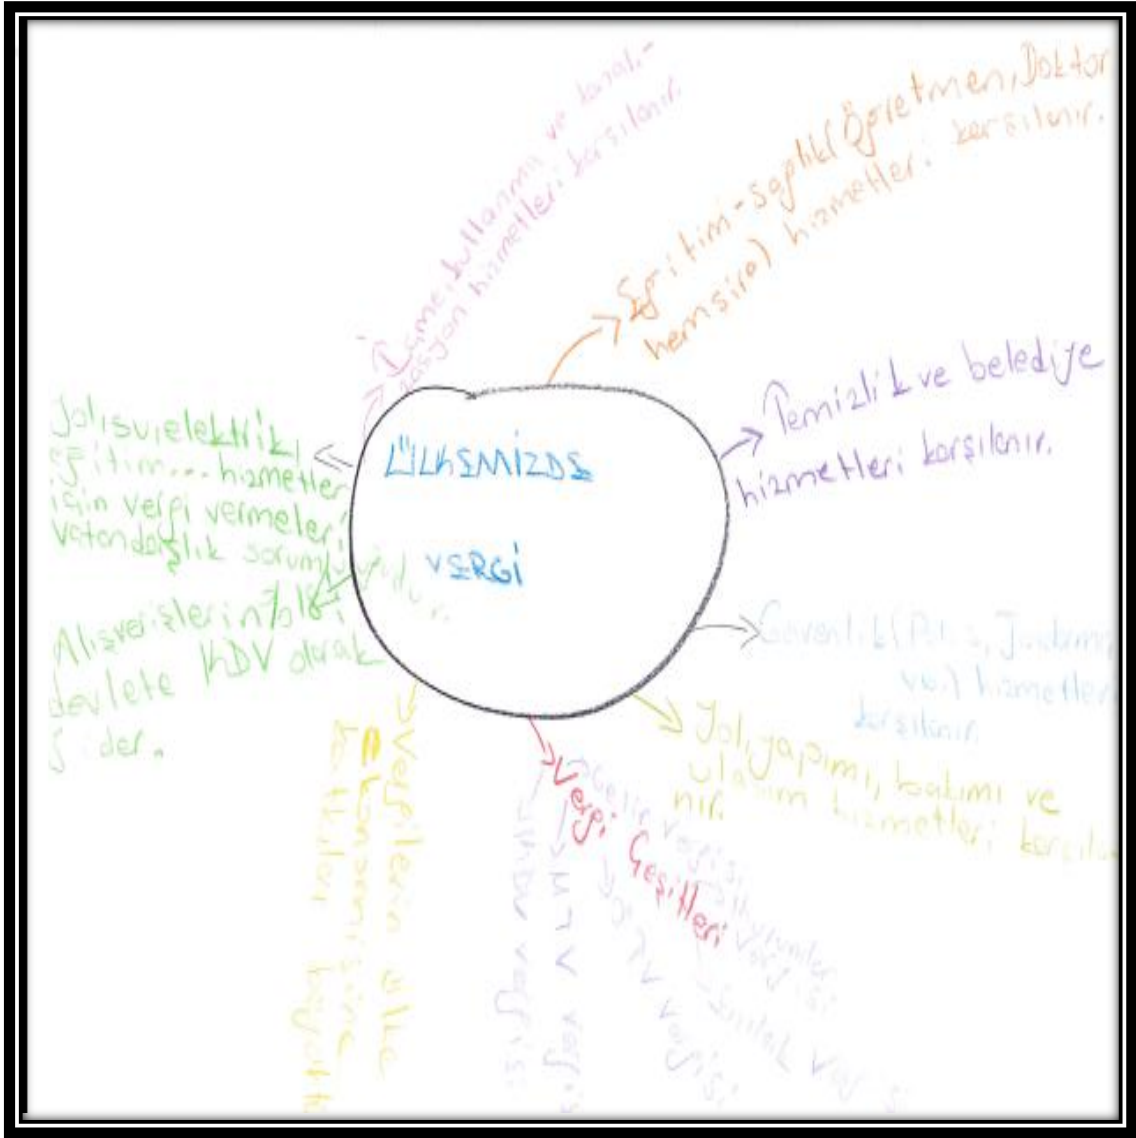 ÜLKEMİZDE
VERGİ
İçme, kullanma ve kanali-
zasyon hizmetleri karşılanır.
Eğitim-sağlık (Öğretmen, Doktor
hemşire) hizmetleri karşılanır.
Temizlik ve belediye
hizmetleri karşılanır.
Güvenlik (Polis, Jandarma
vb.) hizmetler
karşılanır.
Yol, yapımı, bakımı ve
ulaşım hizmetleri karşıla
nır.
Vergi Çeşitleri
Gelir vergisi
vergisi
Emlak vergisi
vergisi
MTV vergisi
vergisi
Vergilerin ülke
ekonomisine
katkıları büyüktür
Alışverişlerin %18'i
devlete KDV olarak
gider.
Yol, su, elektrik,
eğitim... hizmetler
için vergi vermeleri
vatandaşlık sorumluluğudur.